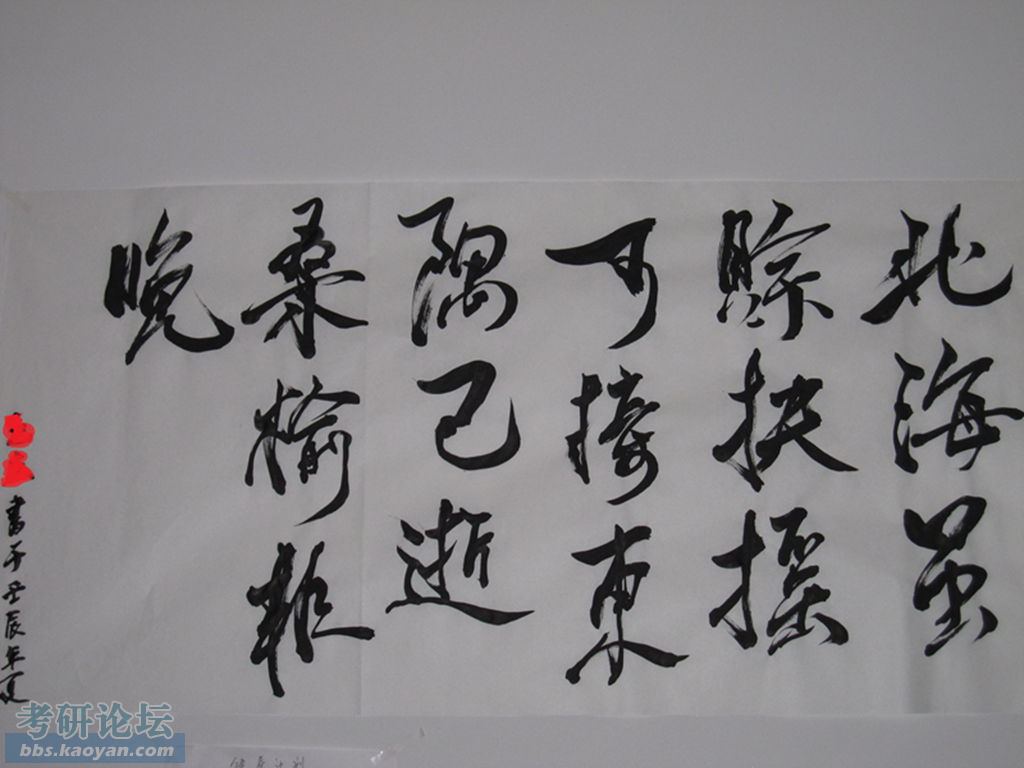 北海虽
賒扶摇
可接東
隅已逝
桑榆非
晚
書于壬辰年夏
考研论坛
bbs.kaoyan.com